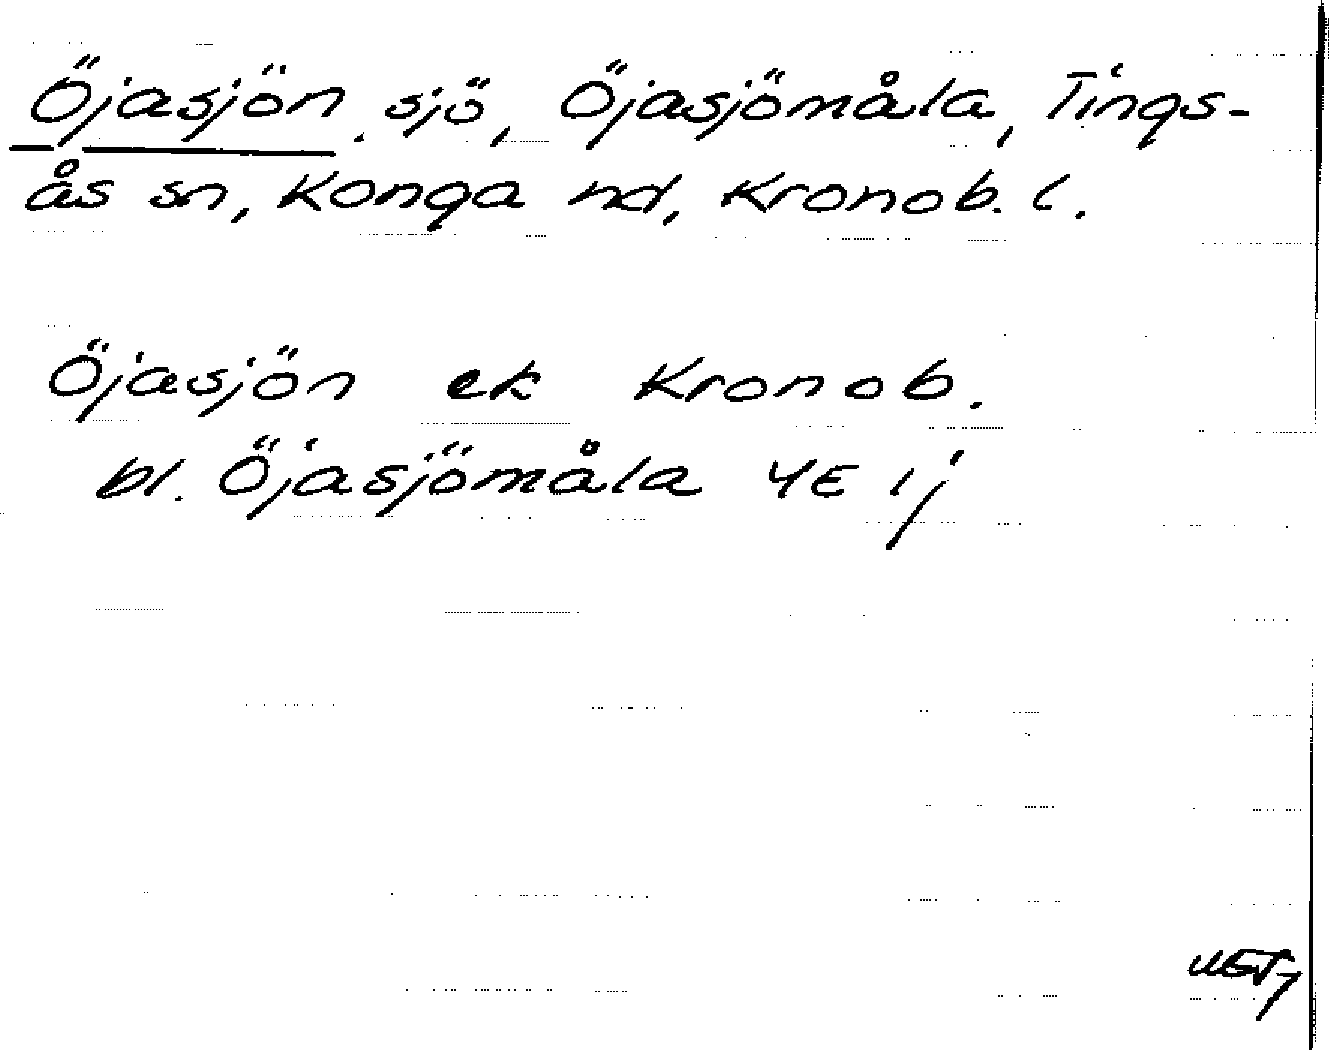 Öjasjön, sjö, Öjasjömåla, Tings-
ås sn, Konga hd, Kronob. l.
Öjasjön ek Kronob.
bl. Öjasjömåla 4E 1j